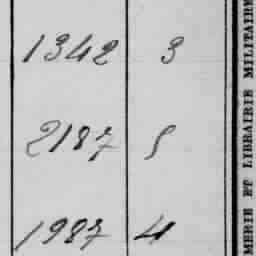 1342 3
2187 5
1987 4
MERIE ET LIBRAIRIE MILITAIRE